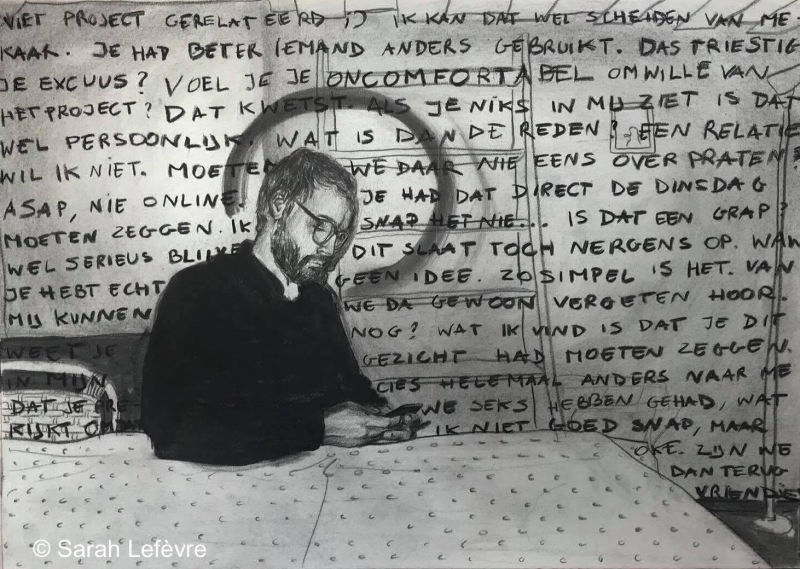 NIET PROJECT GERELATEERD ;) IK KAN DAT WEL SCHEIDEN VAN ME-
KAAR. JE HAD BETER IEMAND ANDERS GEBRUIKT. DAS TRIESTIG
JE EXCUUS? VOEL JE JE ONCOMFORTABEL OMWILLE VAN
HET PROJECT? DAT KWETST. ALS JE NIKS IN MIJ ZIET IS DAT
WEL PERSOONLIJK. WAT IS DAN DE REDEN? EEN RELATIE
WIL IK NIET. MOETEN WE DAAR NIE EENS OVER PRATEN?
ASAP, NIE ONLINE. JE HAD DAT DIRECT DE DINSDAG
MOETEN ZEGGEN. IK SNAP HET NIE... IS DAT EEN GRAP?
WEL SERIEUS BLIJVE DIT SLAAT TOCH NERGENS OP. WAN
JE HEBT ECHT GEEN IDEE. ZO SIMPEL IS HET. VAN
MIJ KUNNEN WE DA GEWOON VERGETEN HOOR.
WEET JE NOG? WAT IK VIND IS DAT JE DIT
IN MIJN GEZICHT HAD MOETEN ZEGGEN.
DAT JE PRE CIES HELEMAAL ANDERS NAAR ME
KIJKT OMDA WE SEKS HEBBEN GEHAD, WAT
IK NIET GOED SNAP, MAAR
OKE. ZIJN WE
DAN TERUG
VRIENDJE
© Sarah Lefèvre